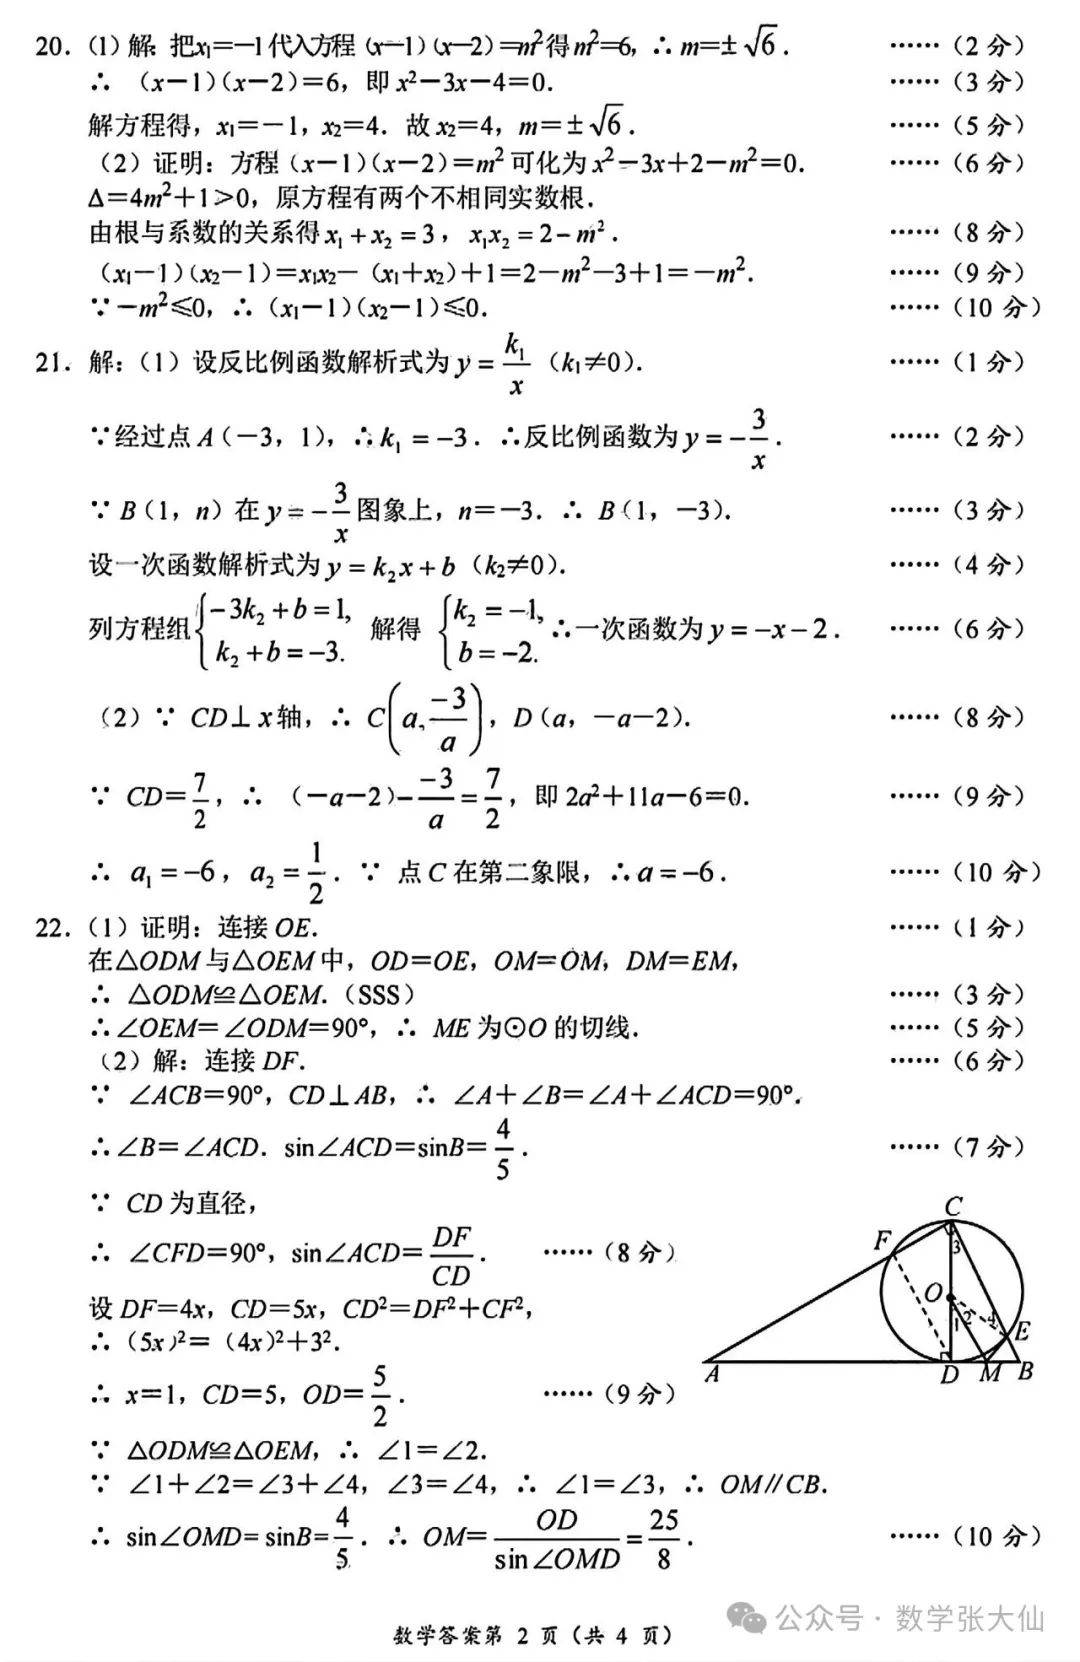 20. (1)解：把x₁=−1代入方程(x−1)(x−2)=m²得m²=6，∴ m=±√6. ……(2分)
∴ (x−1)(x−2)=6，即x²−3x−4=0. ……(3分)
解方程得，x₁=−1，x₂=4. 故x₂=4，m=±√6. ……(5分)
(2)证明：方程(x−1)(x−2)=m²可化为x²−3x+2−m²=0. ……(6分)
Δ=4m²+1>0，原方程有两个不相同实数根.
由根与系数的关系得x₁+x₂=3，x₁x₂=2−m². ……(8分)
(x₁−1)(x₂−1)=x₁x₂−(x₁+x₂)+1=2−m²−3+1=−m². ……(9分)
∵ −m²≤0，∴ (x₁−1)(x₂−1)≤0. ……(10分)
21. 解：(1)设反比例函数解析式为y=k₁/x (k₁≠0). ……(1分)
∵经过点A(−3，1)，∴k₁=−3. ∴反比例函数为y=−3/x. ……(2分)
∵ B(1，n)在y=−3/x图象上，n=−3. ∴ B(1，−3). ……(3分)
设一次函数解析式为y=k₂x+b (k₂≠0). ……(4分)
列方程组{−3k₂+b=1, k₂+b=−3. 解得{k₂=−1, b=−2. ∴一次函数为y=−x−2. ……(6分)
(2)∵ CD⊥x轴，∴ C(a, −3/a)，D(a，−a−2). ……(8分)
∵ CD=7/2，∴ (−a−2)−−3/a=7/2，即2a²+11a−6=0. ……(9分)
∴ a₁=−6，a₂=1/2. ∵ 点C在第二象限，∴a=−6. ……(10分)
22. (1)证明：连接OE. ……(1分)
在△ODM与△OEM中，OD=OE，OM=OM，DM=EM，
∴ △ODM≌△OEM. (SSS) ……(3分)
∴∠OEM=∠ODM=90°，∴ ME为⊙O的切线. ……(5分)
(2)解：连接DF. ……(6分)
∵ ∠ACB=90°，CD⊥AB，∴ ∠A+∠B=∠A+∠ACD=90°.
∴∠B=∠ACD. sin∠ACD=sinB=4/5. ……(7分)
∵ CD为直径，
∴ ∠CFD=90°，sin∠ACD=DF/CD. ……(8分)
设DF=4x，CD=5x，CD²=DF²+CF²，
∴ (5x)²=(4x)²+3².
∴ x=1，CD=5，OD=5/2. ……(9分)
∵ △ODM≌△OEM，∴ ∠1=∠2.
∵ ∠1+∠2=∠3+∠4，∠3=∠4，∴ ∠1=∠3，∴ OM∥CB.
∴ sin∠OMD=sinB=4/5. ∴ OM=OD/sin∠OMD=25/8. ……(10分)
C
F
3
O
1 2 4
E
A D M B
公众号·数学张大仙
数学答案第 2 页(共 4 页)